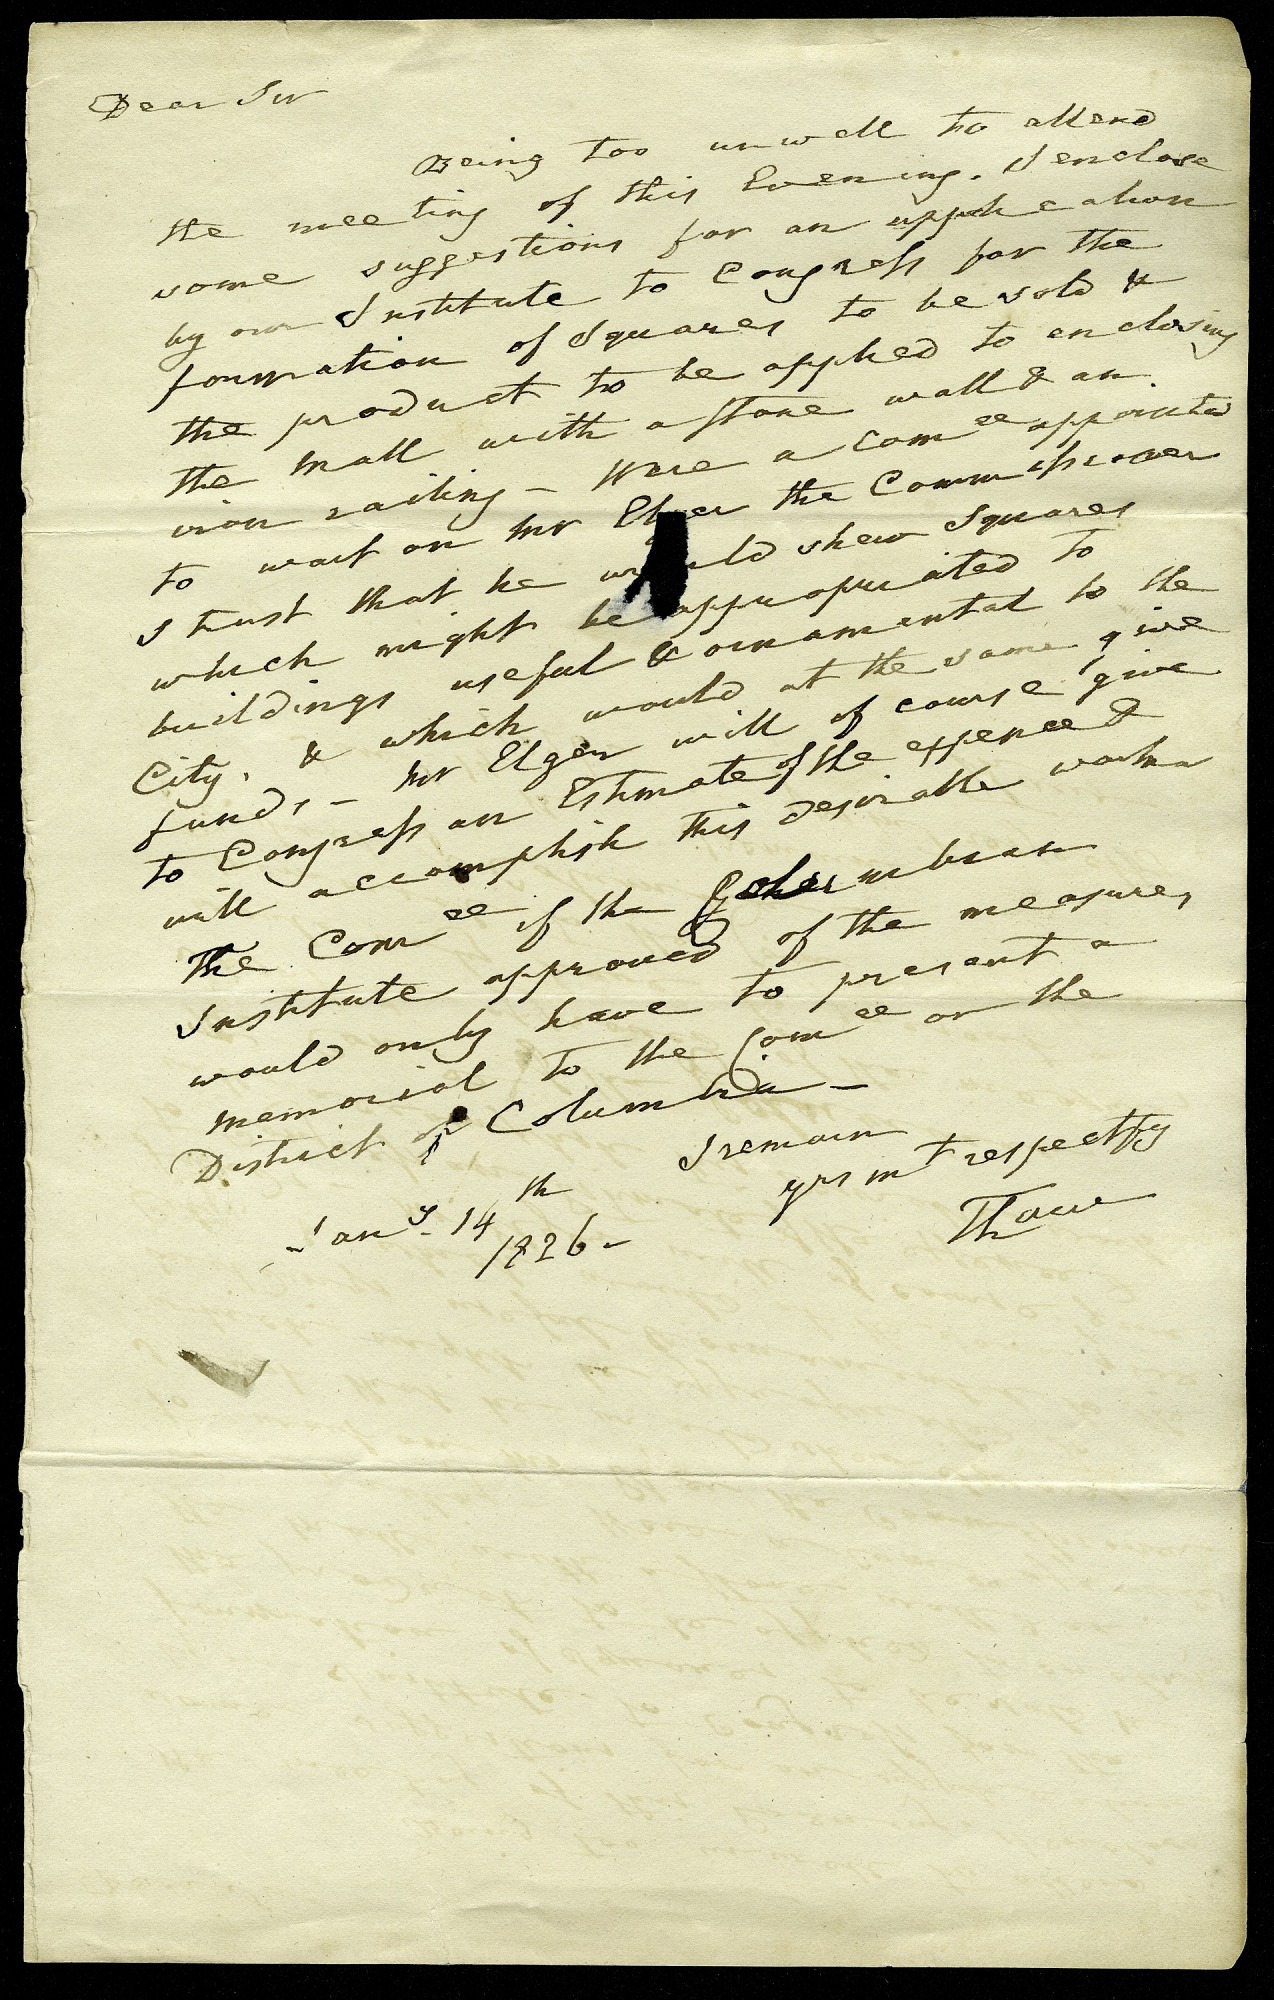 Dear Sir
Being too unwell to attend
the meeting of this Evening. I enclose
some suggestions for an application
by our Institute to Congress for the
formation of Squares to be sold &
the product to be applied to enclosing
the Mall with a stone wall & an
iron railing – Were a Comee appointed
to wait on Mr Elger the Commissioner
I trust that he would shew Squares
which might be appropriated to
buildings useful & ornamental to the
City, & which would at the same give
funds – Mr Elger will of course give
to Congress an Estimate of the expence &
will accomplish this desirable work
The Comee if the Columbian
Institute approved of the measure,
would only have to present a
Memorial to the Comee on the
District of Columbia –
I remain
yrs mt respectfy
Jany. 14th
1826 –